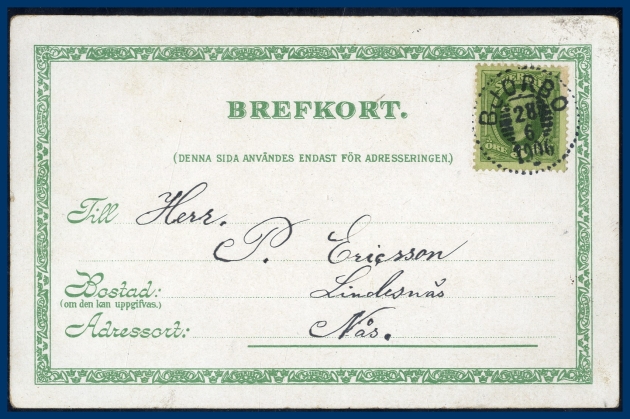 BREFKORT.
(DENNA SIDA ANVÄNDES ENDAST FÖR ADRESSERINGEN.)
BJÖRBO
28
6
1906
ÖRE
Till Herr.
P. Ericsson
Bostad: Lindesnäs
(om den kan uppgifvas.)
Adressort: Nås.